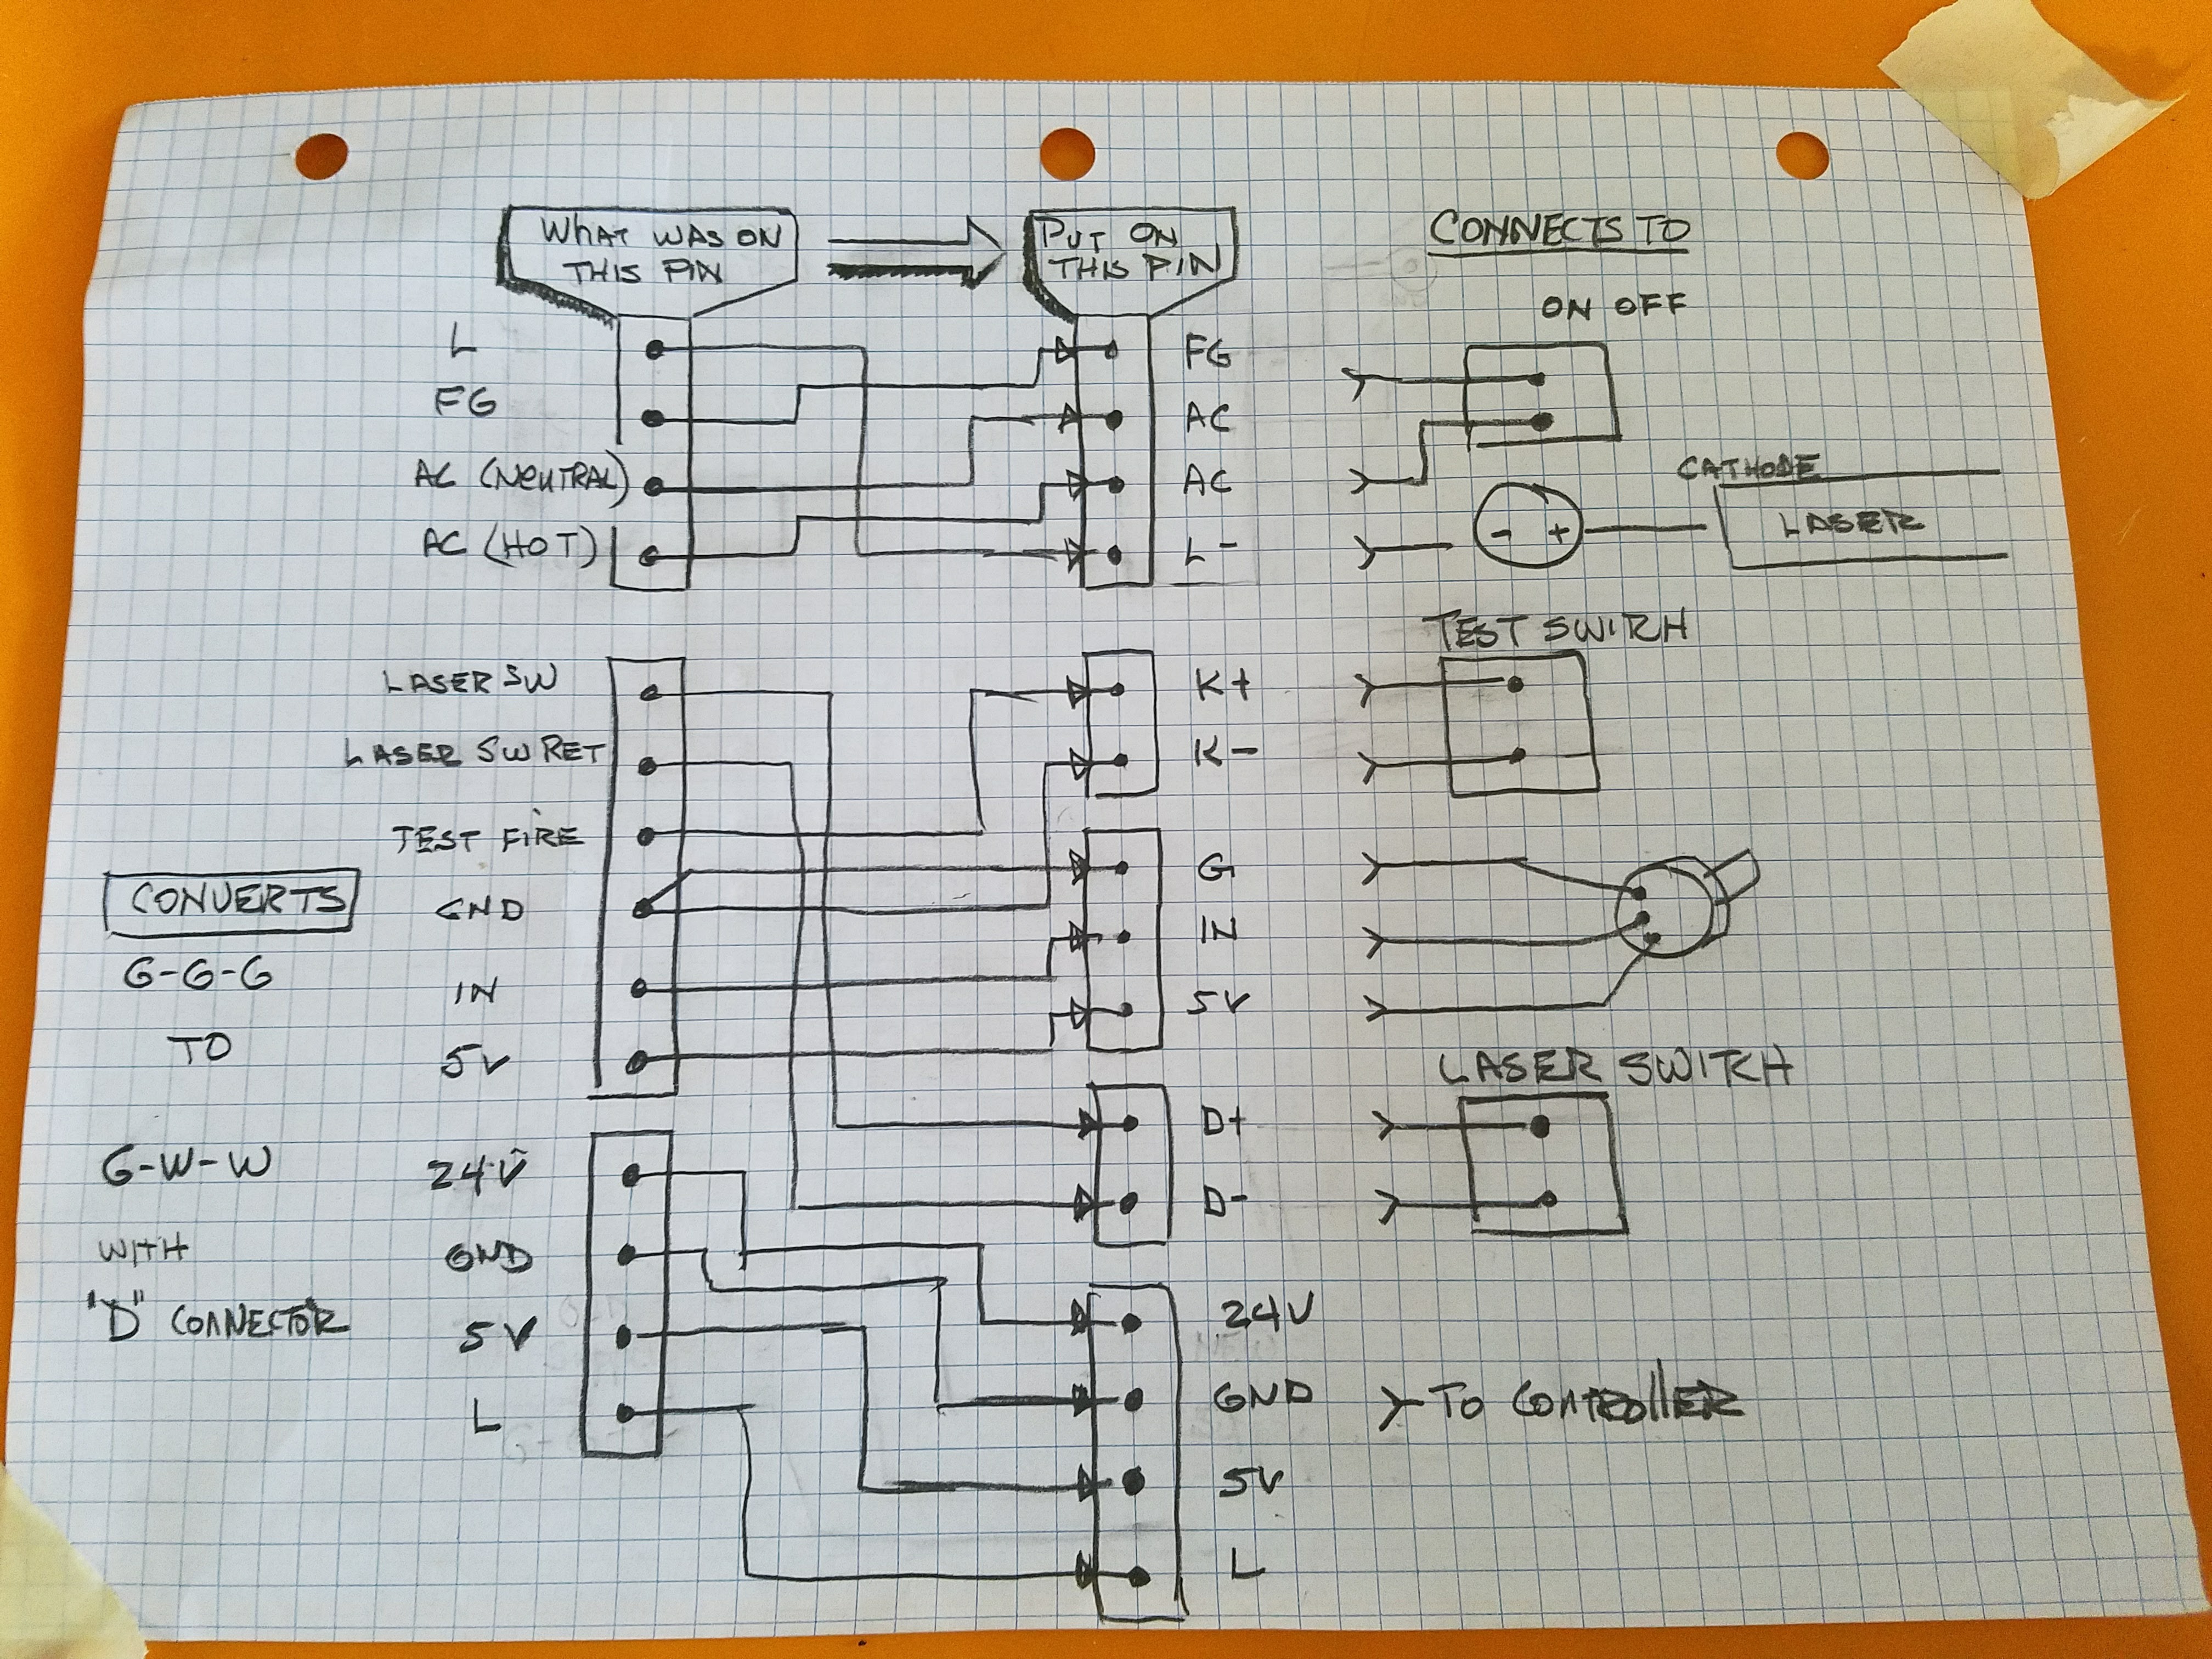 WHAT WAS ON
THIS PIN
PUT ON
THIS PIN
CONNECTS TO
ON OFF
L
FG
AC (NEUTRAL)
AC (HOT)
FG
AC
AC
L-
CATHODE
LASER
LASER SW
LASER SW RET
TEST FIRE
GND
IN
5V
K+
K-
TEST SWITCH
G
IN
5V
D+
D-
LASER SWITCH
CONVERTS
G-G-G
TO
G-W-W
WITH
"D" CONNECTOR
24V
GND
5V
L
24V
GND
5V
L
TO CONTROLLER
- +